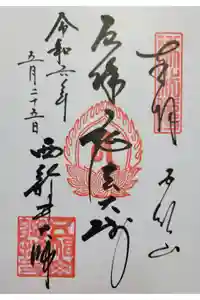 奉拝
五智山
厄除 弘法大師
令和六年
五月二十五日
西新井大師